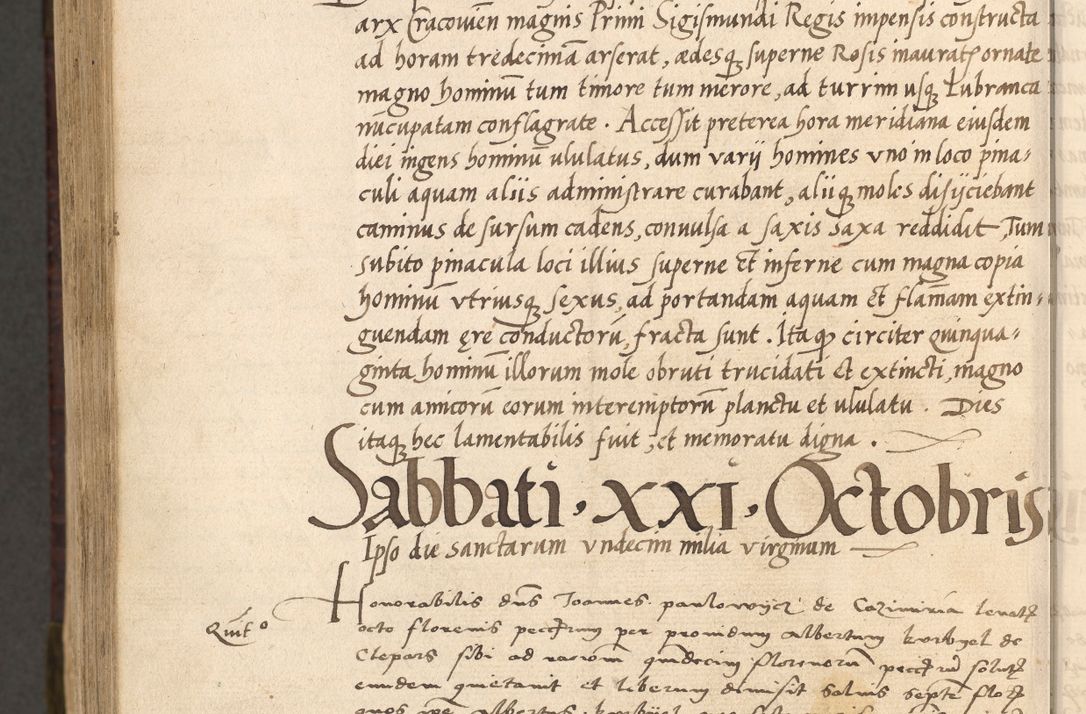 arx Cracovien magnis Primi Sigismundi Regis impensis constructa
ad horam tredecimā arserat, ædesq superne Rosis
magno hominū tum timore tum merore, ad turrim usq Lubranca
nūcupatam conflagrate. Accessit preterea hora meridiana eiusdem
diei ingens hominū ululatus, dum varij homines vno in loco pina-
culi aquam aliis administrare curabant, aliiq moles disijciebant
caminus de sursum cadens, convulsa a saxis saxa reddidit, Tum
subito pinacula loci illius superne et inferne cum magna copia
hominū vtriusq sexus, ad portandam aquam et flāmam extin-
guendam ęre conductorū, fracta sunt. Itaq circiter quinqua-
ginta hominū illorum mole obruti trucidati et extincti, magno
cum amicorū eorum interemptorū planctu et ululatu. Dies
itaq hec lamentabilis fuit, et memoratu digna.
Sabbati · XXI · Octobris
Ipso die sanctarum vndecim milia virginum
Quit°
Honorabilis dns Joannes pawlowycz de
octo florenis per providum Albertum de
Clepars sibi ad racionem quindecim florenorū
eundem quietavit et liberum dimisit salvis septē
Albertus